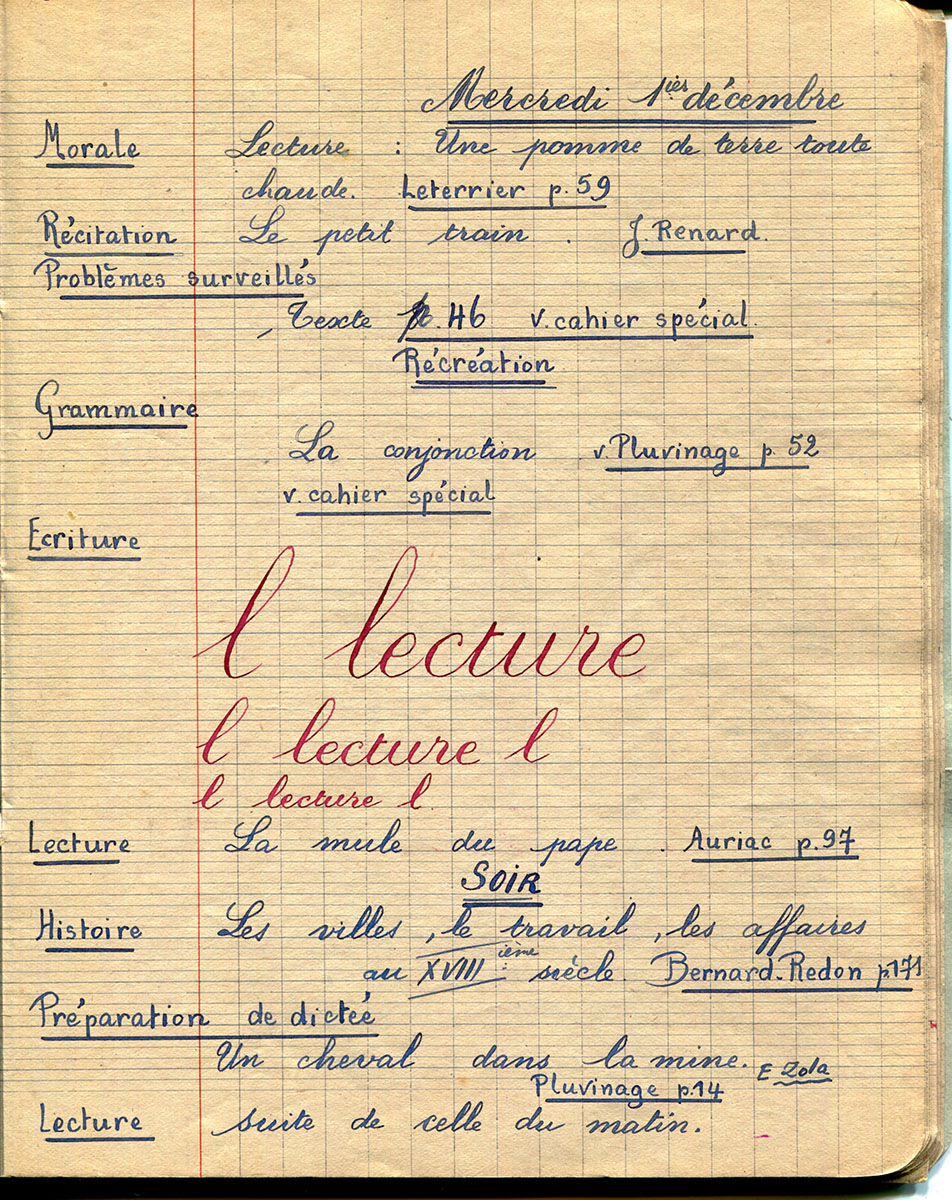 Mercredi 1ier décembre
Morale Lecture : Une pomme de terre toute
chaude. Leterrier p. 59
Récitation Le petit train . J. Renard.
Problèmes surveillés
Texte p. 46 v. cahier spécial.
Récréation
Grammaire
La conjonction v. Pluvinage p. 52
v. cahier spécial
Ecriture
l lecture
l lecture l
l lecture l
Lecture La mule du pape . Auriac p. 97
SOIR
Histoire Les villes, le travail, les affaires
au XVIII ième siècle. Bernard-Redon p 171
Préparation de dictée
Un cheval dans la mine. E Zola
Pluvinage p. 14
Lecture suite de celle du matin.